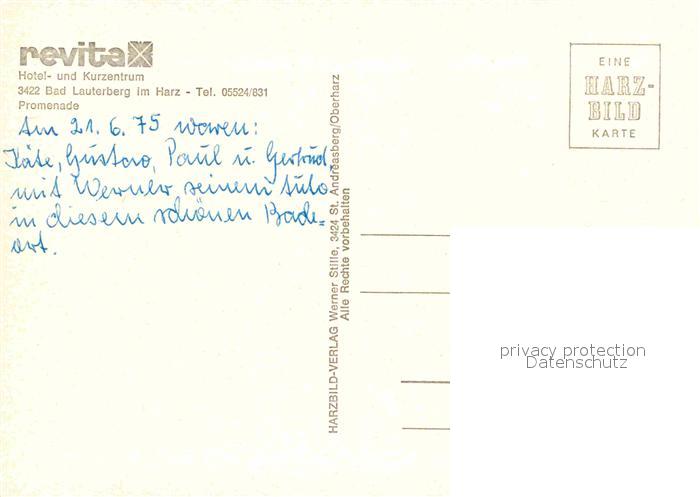 revita
Hotel- und Kurzentrum
3422 Bad Lauterberg im Harz - Tel. 05524/831
Promenade
Am 21. 6. 75 waren:
Käte, Gustav, Paul u. Gertrud
mit Werner seinem Auto
in diesem schönen Bade=
ort.
HARZBILD-VERLAG Werner Stille, 3424 St. Andreasberg/Oberharz
Alle Rechte vorbehalten
EINE
HARZ-
BILD
KARTE
privacy protection
Datenschutz